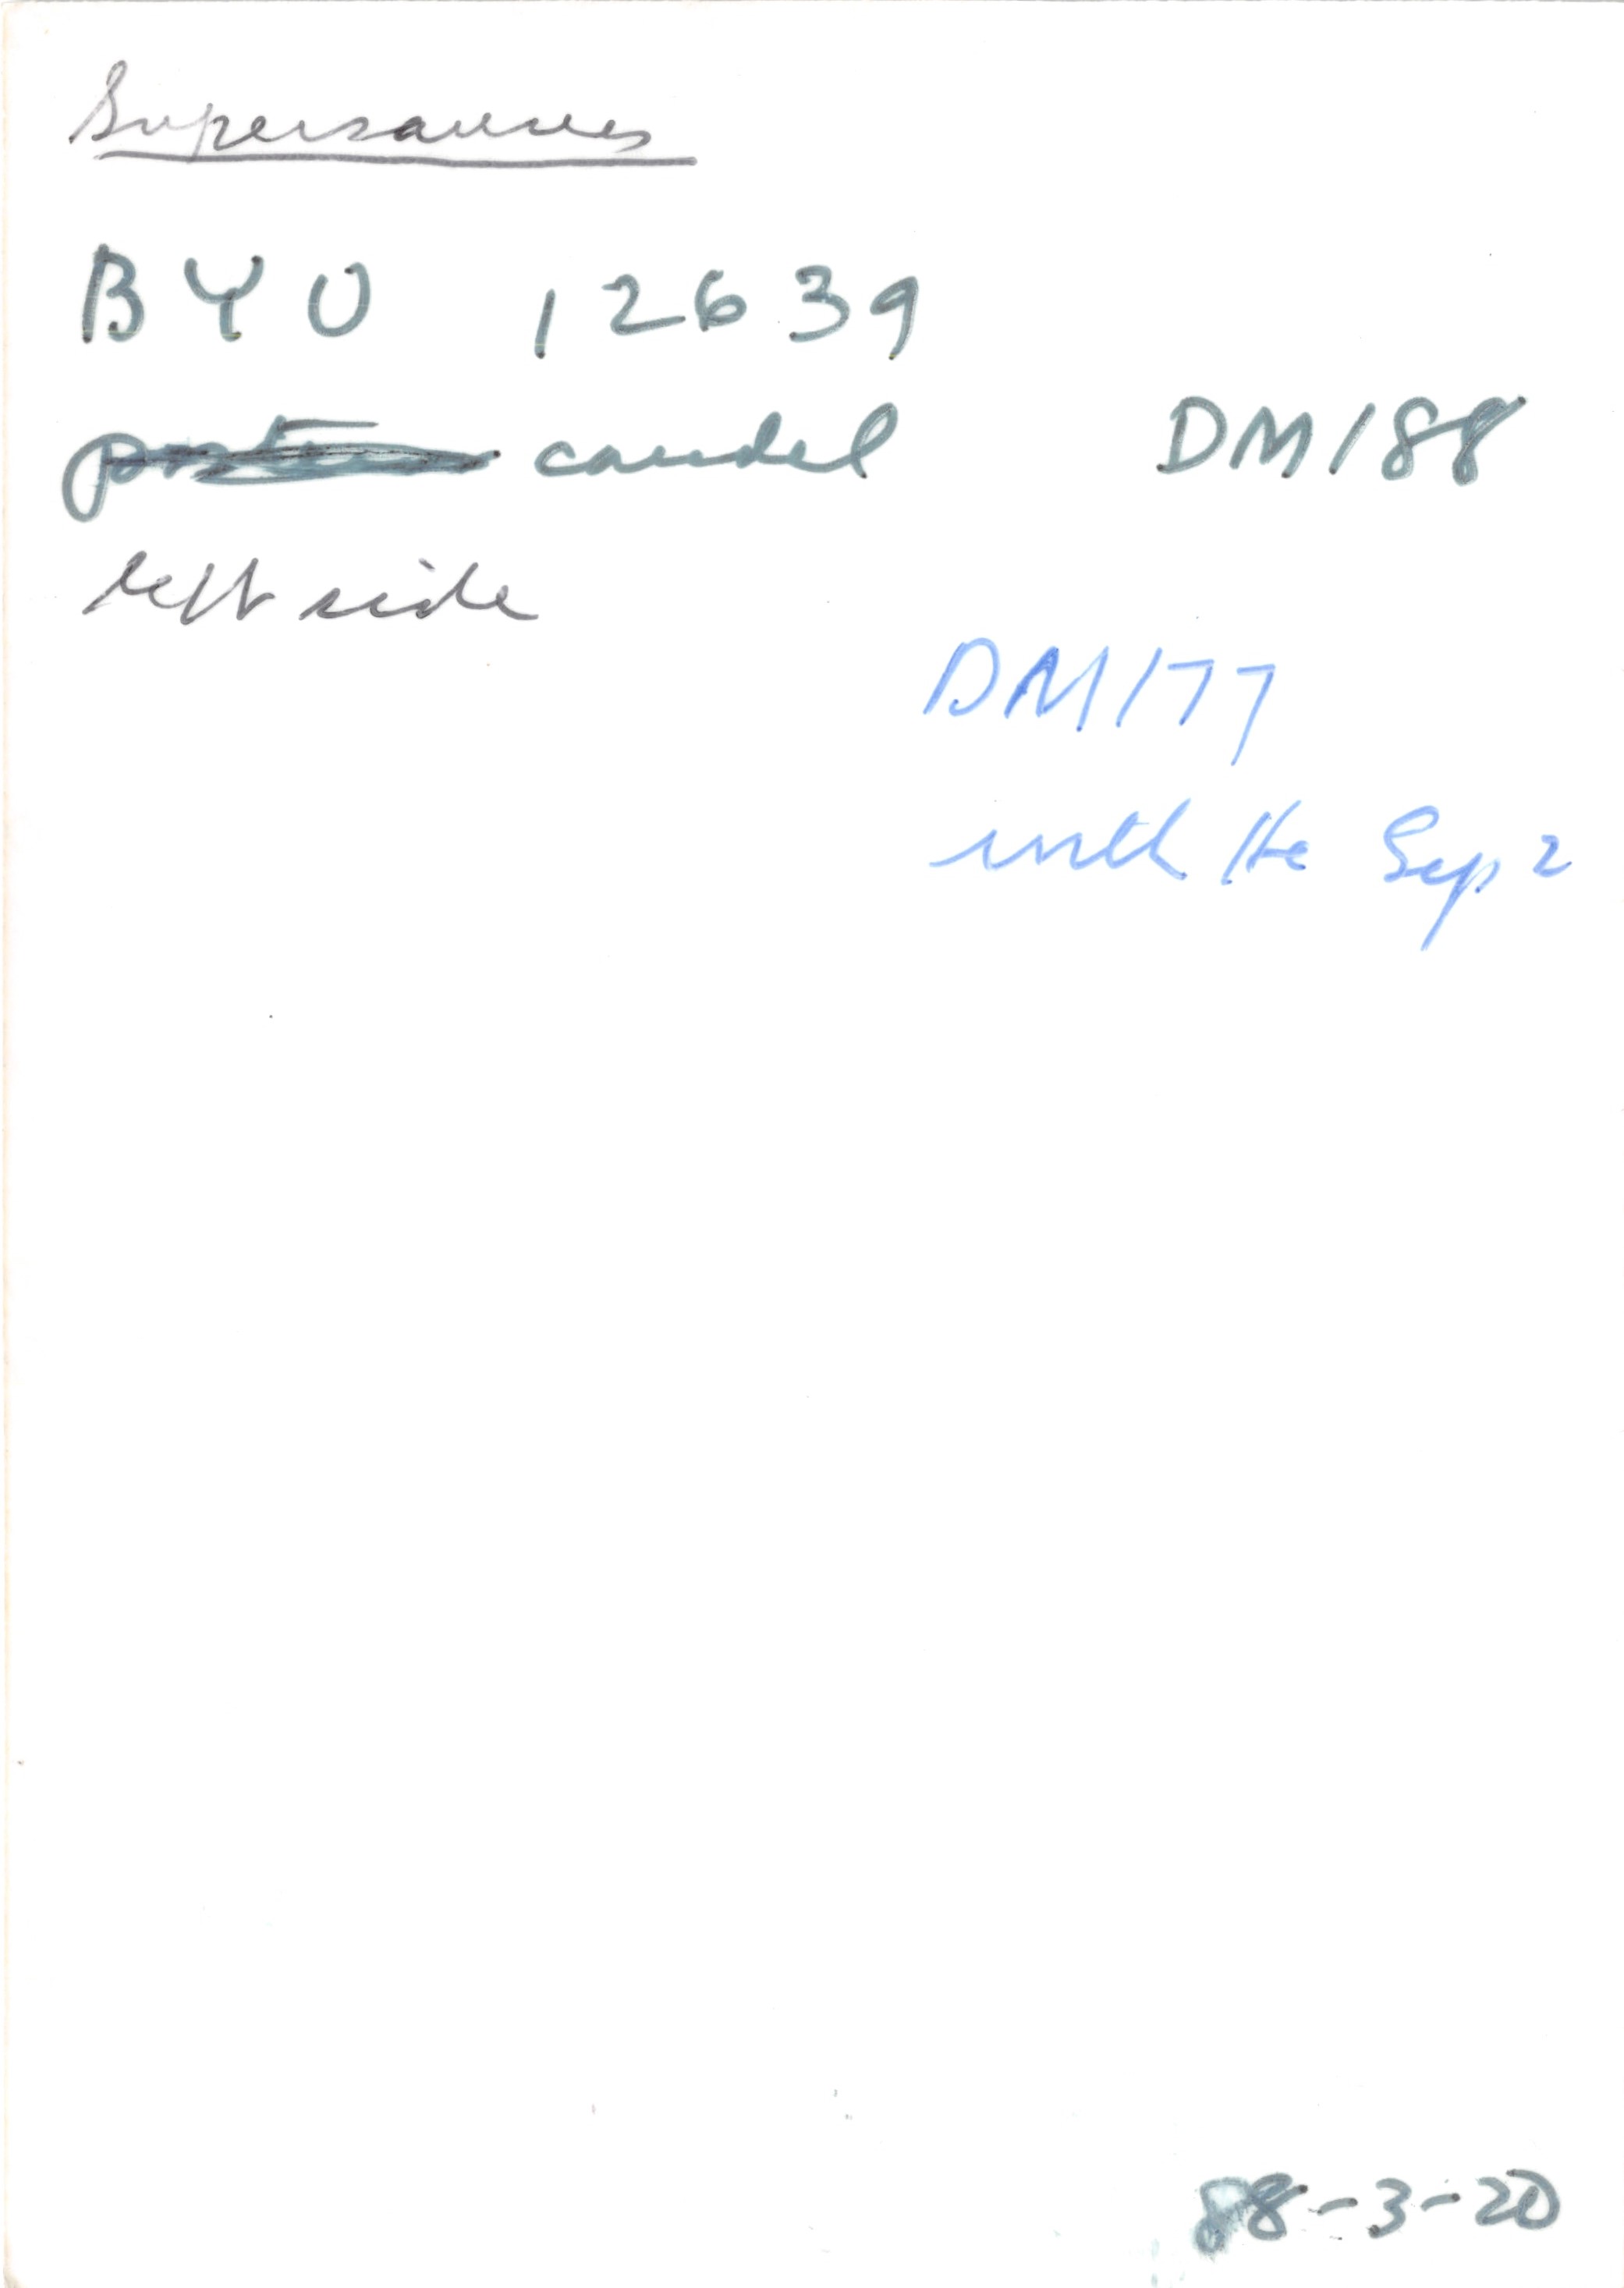 Supersaurus
BYU 12639
caudal DM/88
left side
DM/77
with the Sep 2
88-3-20